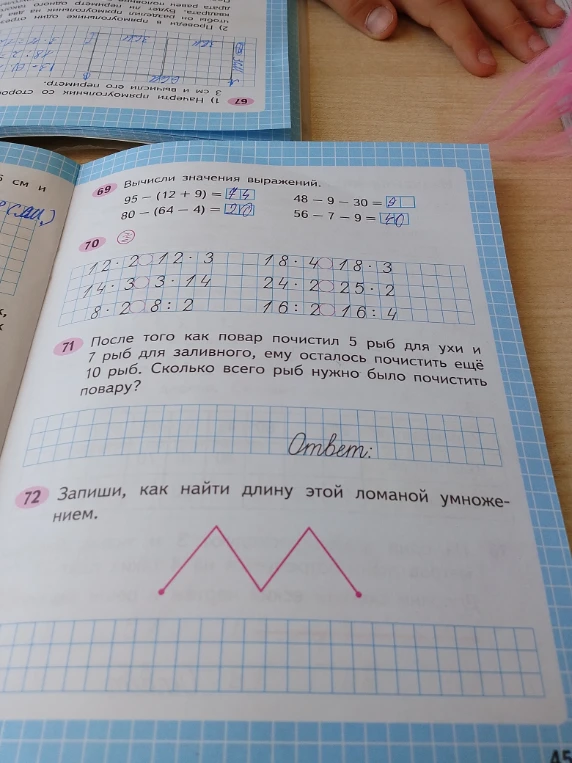 67
1) Начерти прямоугольник со
3 см и вычисли его периметр.
2) Проведи в прямоугольнике один
чтобы он разделил прямоугольник на два
см и
69 Вычисли значения выражений.
95 − (12 + 9) = 74
48 − 9 − 30 = 9
80 − (64 − 4) = 20
56 − 7 − 9 = 40
70
12 · 2 12 · 3 18 · 4 18 · 3
14 · 3 3 · 14 24 · 2 25 · 2
8 · 2 8 : 2 16 : 2 16 : 4
71 После того как повар почистил 5 рыб для ухи и
7 рыб для заливного, ему осталось почистить ещё
10 рыб. Сколько всего рыб нужно было почистить
повару?
Ответ:
72 Запиши, как найти длину этой ломаной умноже-
нием.
45